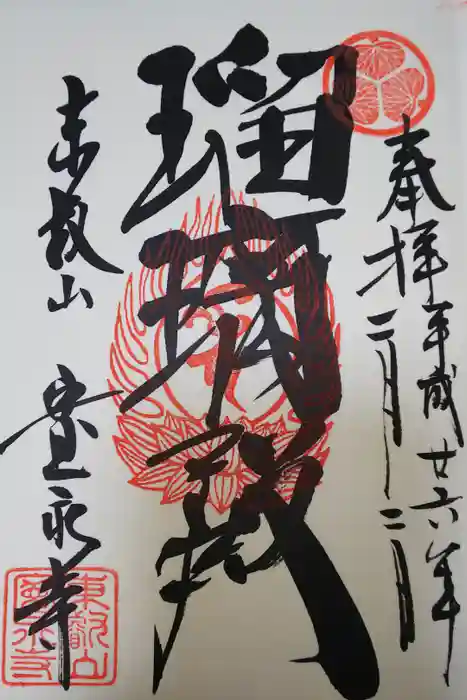 奉拝
平成廿六年
二月二日
瑠璃殿
東叡山 寛永寺
東叡山
寛永寺